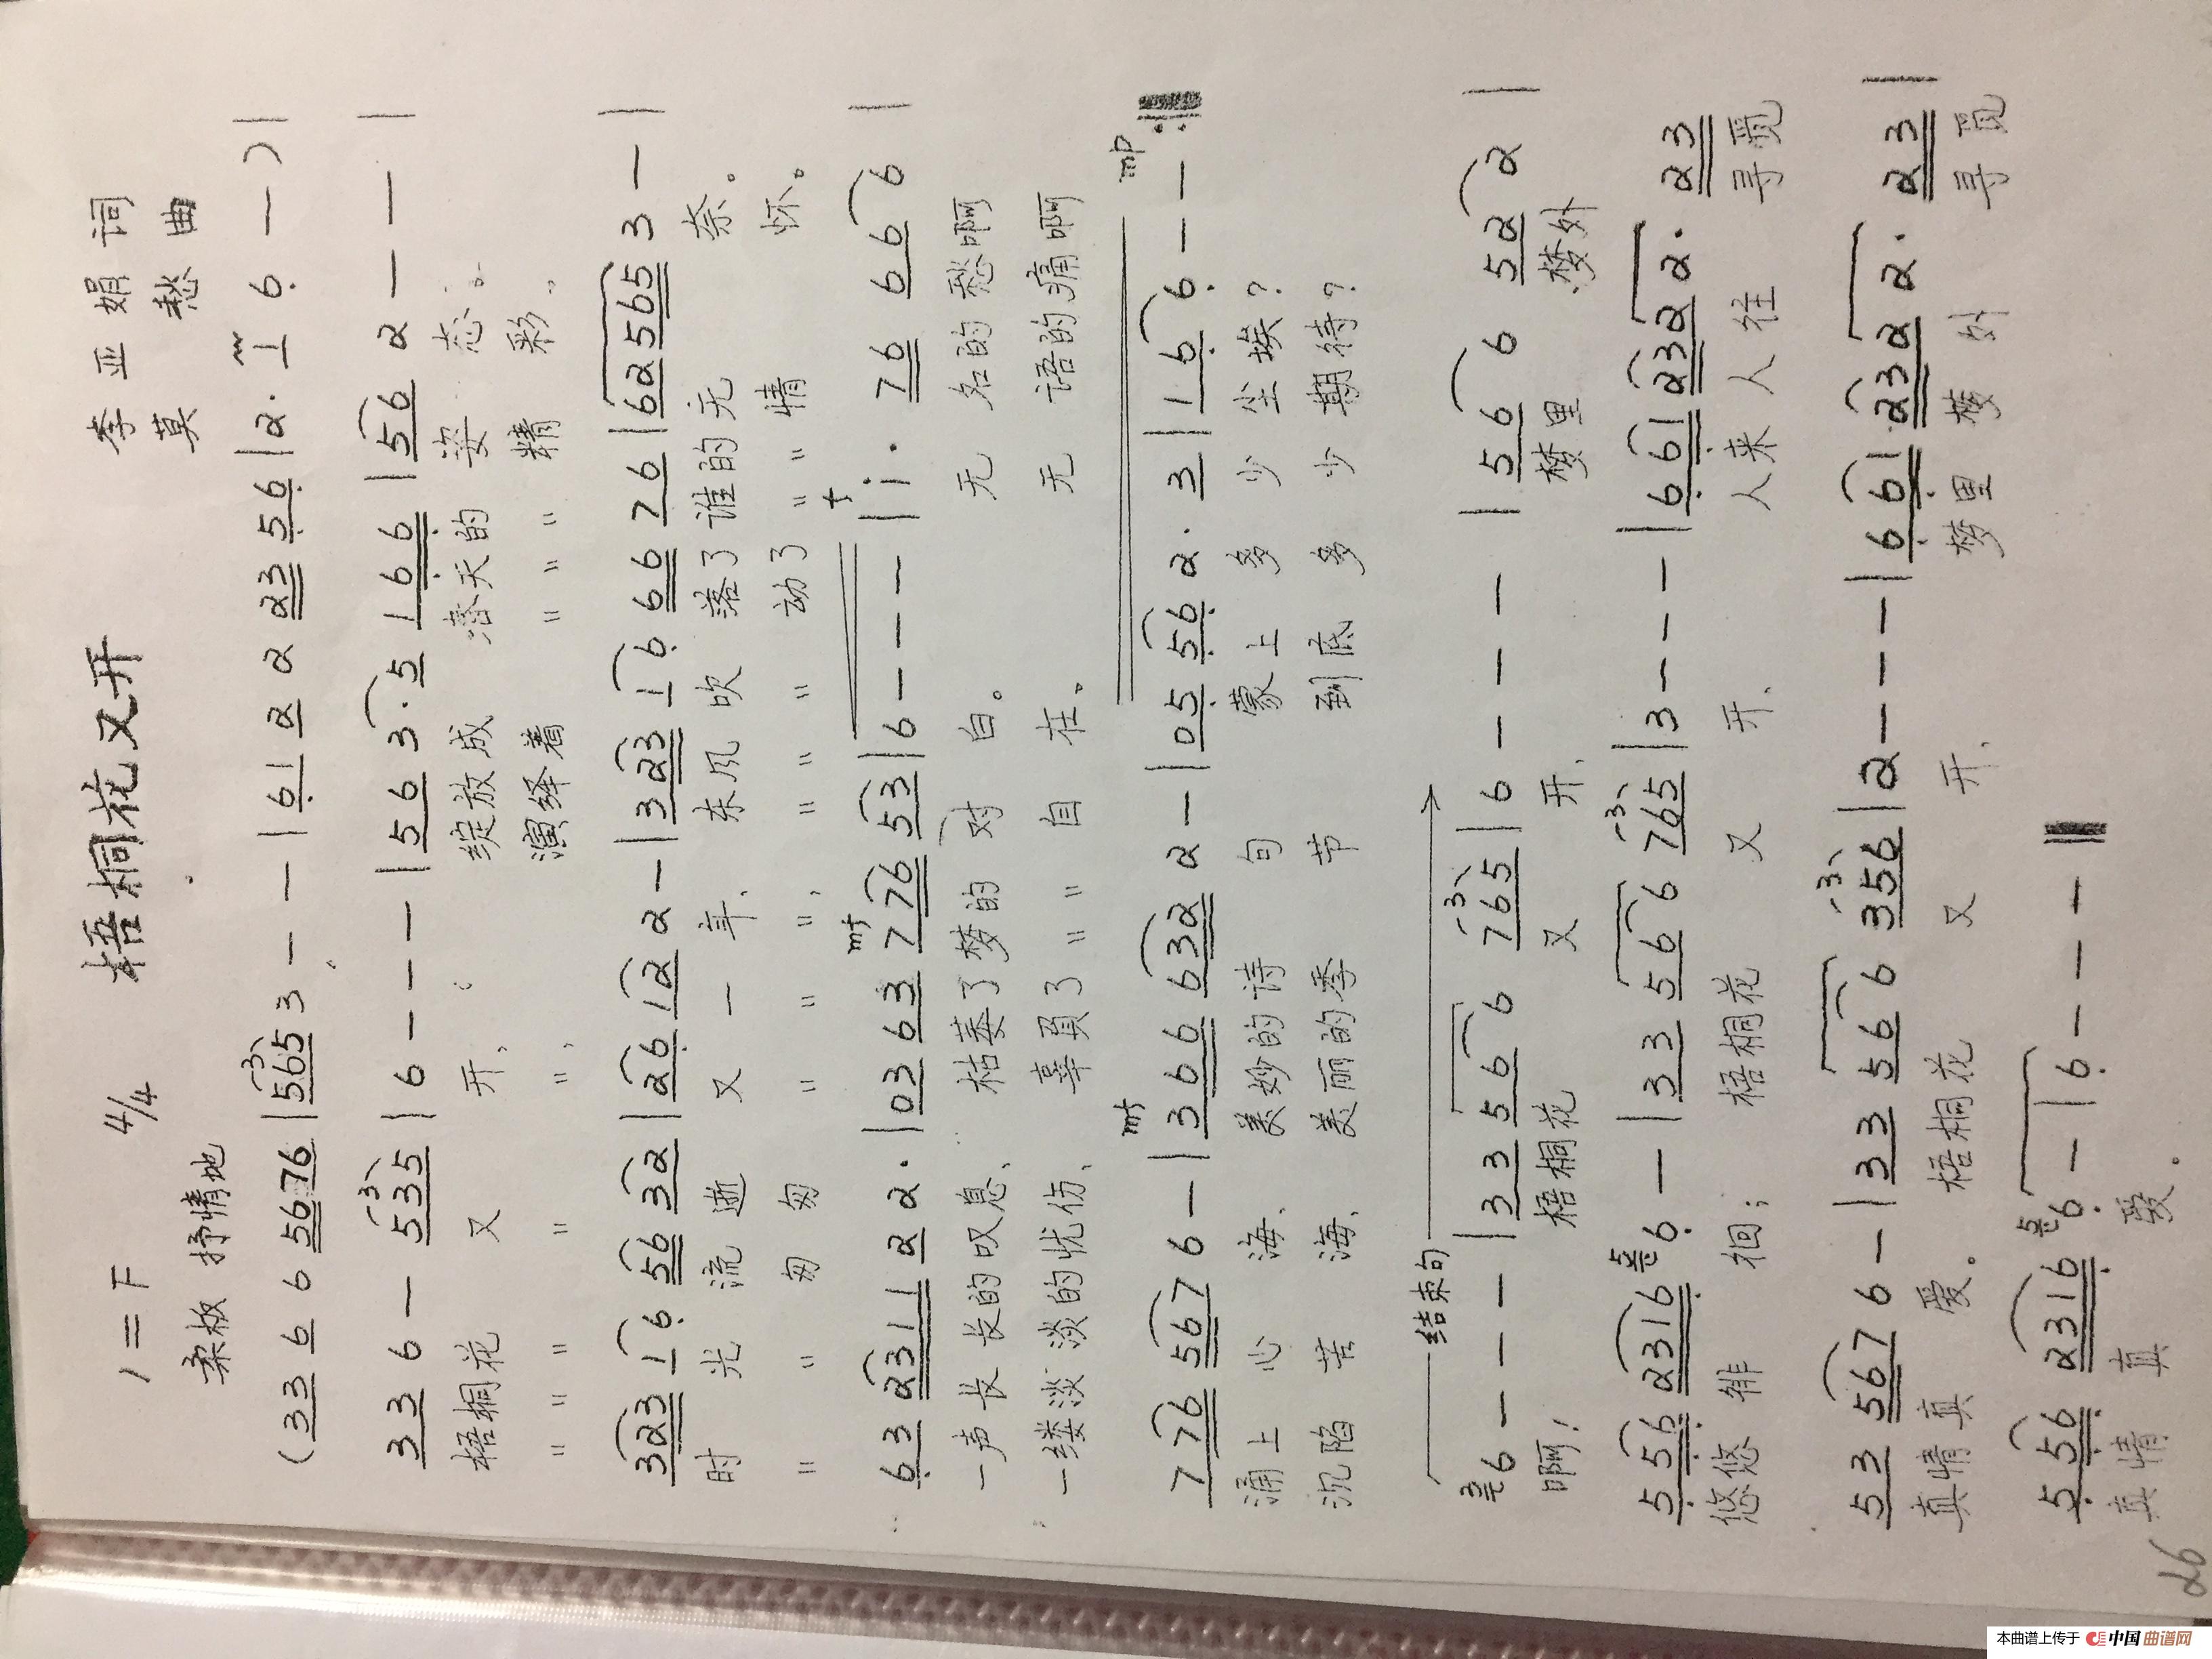 1=F 4/4 梧桐花又开 李亚娟 词
柔板 抒情地 莫愁 曲
(3 3 6 6 5676 | 5653 3 - - | 6 1 2 2 23 56 | 2· 1 6 -) |
3 3 6 - 535 | 6 - - - | 5 6 3· 5 1 66 | 56 2 - - |
梧桐花 又 开, 绽放成 春天的 姿 态。
" " " " ", 演绎着 " " " 精 彩。
323 16 56 32 | 26 12 2 - | 3 23 16 66 76 | 625653 - |
时 光 流 逝 又 一 年, 东风 吹 落了 谁的 无 奈。
" " 匆 匆 " " ", " " " 动了 " 情 怀。
6 3 2311 2 2· | 03 63 7 76 53 | 6 - - - | i· 76 6 6 6 |
mf f
一声长长的叹息、 枯萎了梦的 对 白。 无 名的愁啊
一缕淡淡的忧伤、 辜负了 " 自 在。 无 语的痛啊
7 76 567 6 - | 3 66 632 2 - | 05 56 2· 3 | 1 6 6 - - :‖
mf mp
涌上 心 海、 美妙的诗 句 蒙上 多 少 尘埃?
沉陷 苦 海、 美丽的季 节 到底 多 少 期待?
结束句
6 - - - | 3 3 56 6 765 | 6 - - - | 56 6 52 2 |
啊! 梧桐花 又 开、 梦里 梦外
5 56 2316 6 - | 3 3 56 6 765 | 3 - - - | 6 61 232 2· 23 |
悠悠 徘 徊; 梧桐花 又 开、 人来 人 往 寻觅
5 3 567 6 - | 3 3 56 6 356 | 2 - - - | 6 61 232 2· 23 |
真情真 爱。 梧桐花 又 开、 梦里 梦 外 寻觅
5 56 2316 6 - | 6 - - - ‖
真情 真 爱。
26
本曲谱上传于 中国曲谱网